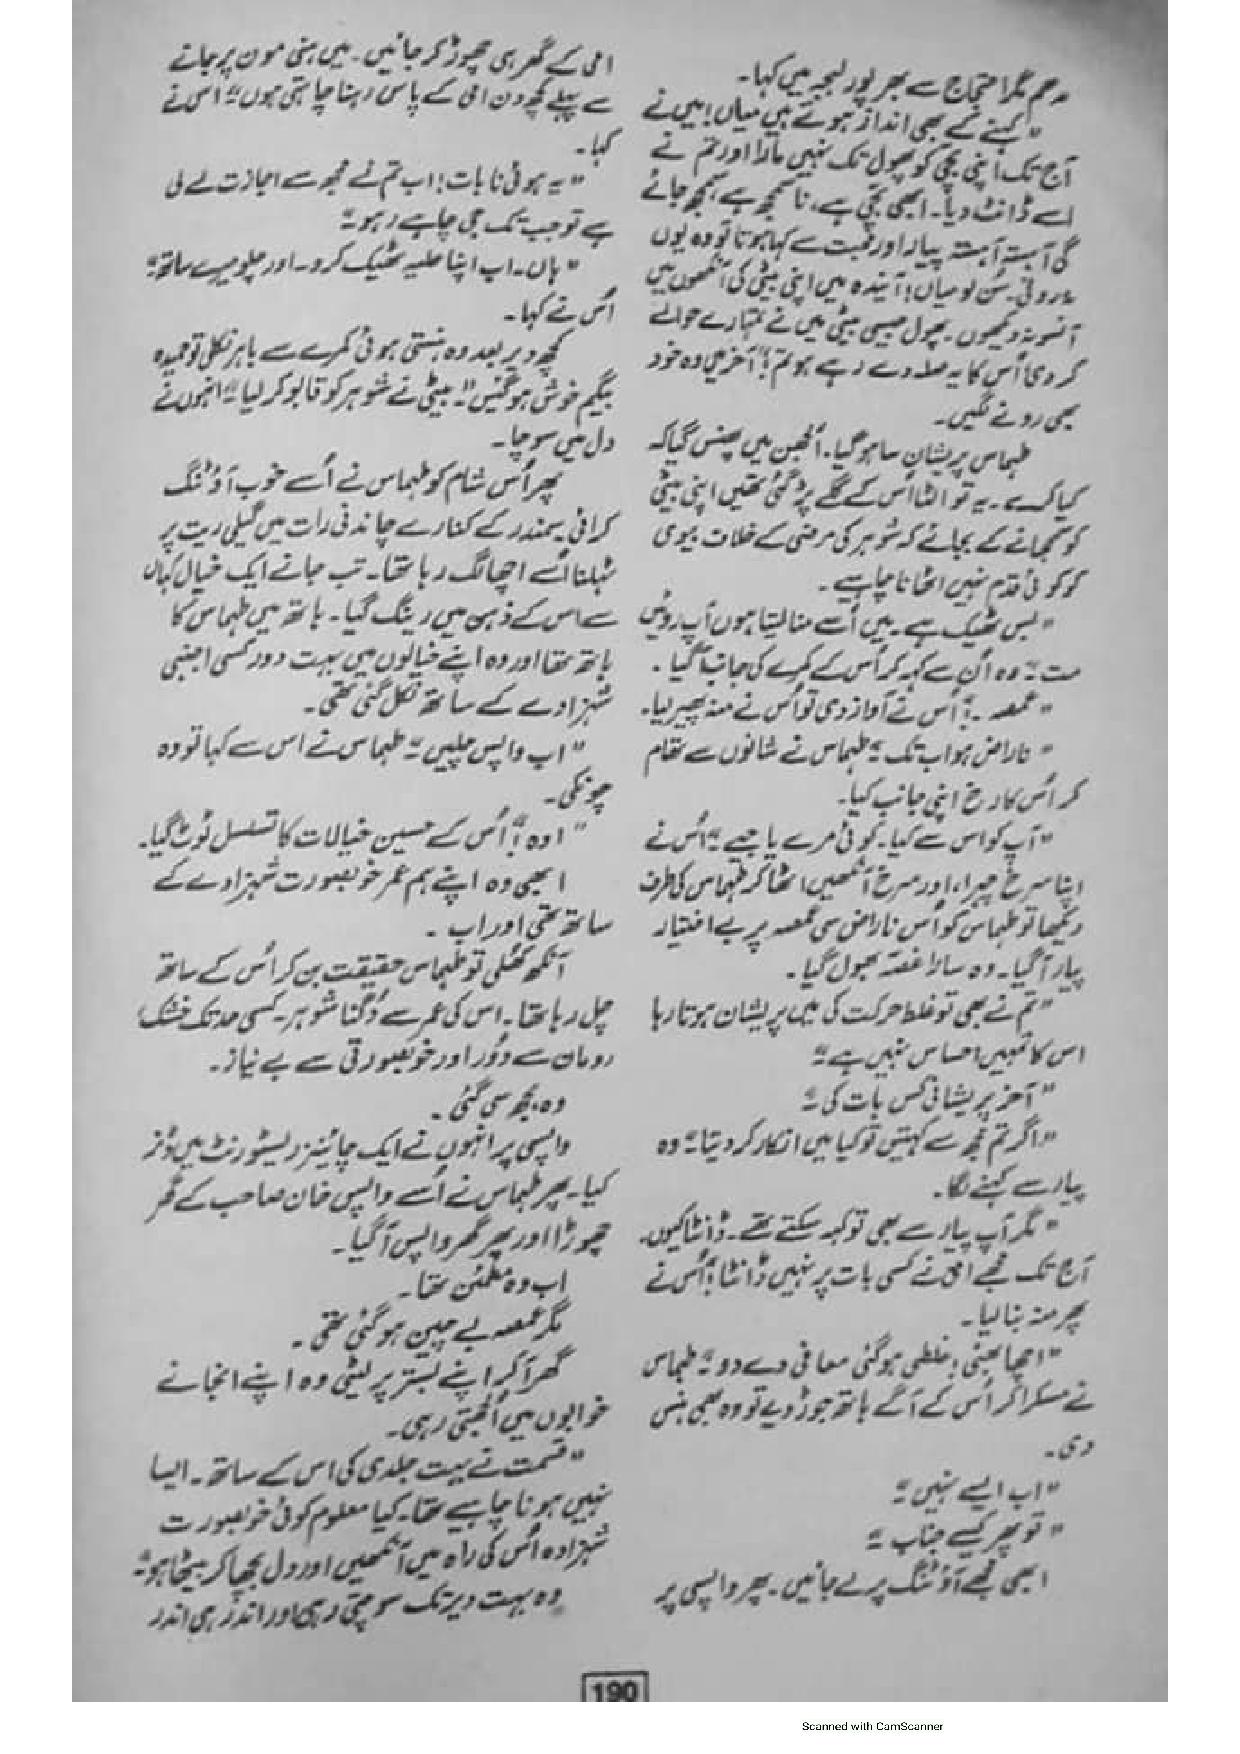 مدھم مگر احتجاج سے بھر پور لہجہ میں کہا۔
"کہنے کے بھی انداز ہوتے ہیں میاں! میں نے
آج تک اپنی بچی کو پھول تک نہیں مارا اور تم نے
اسے ڈانٹ دیا۔ ابھی بچی ہے، نا سمجھ ہے، سمجھ جائے
گی آہستہ آہستہ پیار اور محبت سے کہا ہوتا تو وہ یوں
نہ روتی۔ سُن لو میاں! آئندہ میں اپنی بیٹی کی آنکھوں میں
آنسو نہ دیکھوں۔ پھول جیسی بیٹی میں نے تمہارے حوالے
کر دی اُس کا یہ صلہ دے رہے ہو تم؟" آخر میں وہ خود
بھی رونے لگیں۔
طہماس پریشان سا ہو گیا۔ اُلجھن میں پھنس گیا کہ
کیا کرے۔ یہ تو الٹا اُس کے گلے پڑ گئی تھیں اپنی بیٹی
کو سمجھانے کے بجائے کہ شوہر کی مرضی کے خلاف بیوی
کو کوئی قدم نہیں اٹھانا چاہیے۔
"بس ٹھیک ہے۔ میں اُسے منا لیتا ہوں آپ روئیں
مت" وہ اُن سے کہہ کر اُس کے کمرے کی جانب آ گیا۔
"عمعصہ۔!" اُس نے آواز دی تو اُس نے منہ پھیر لیا۔
"ناراض ہو اب تک" طہماس نے شانوں سے تھام
کر اُس کا رخ اپنی جانب کیا۔
"آپ کو اس سے کیا۔ کوئی مرے یا جیے" اُس نے
اپنا سرخ چہرا، اور سرخ آنکھیں اٹھا کر طہماس کی طرف
دیکھا تو طہماس کو اُس ناراض سی عمعصہ پر بے اختیار
پیار آ گیا۔ وہ سارا غصہ بھول گیا۔
"تم نے بھی تو غلط حرکت کی میں پریشان ہوتا رہا
اس کا تمہیں احساس نہیں ہے"
"آخر پریشانی کس بات کی"
"اگر تم مجھ سے کہتیں تو کیا میں انکار کر دیتا" وہ
پیار سے کہنے لگا۔
"مگر آپ پیار سے بھی تو کہہ سکتے تھے۔ ڈانٹا کیوں۔
آج تک مجھے امی نے کسی بات پر نہیں ڈانٹا!" اُس نے
پھر منہ بنا لیا۔
"اچھا بھئی! غلطی ہو گئی معافی دے دو" طہماس
نے مسکرا کر اُس کے آگے ہاتھ جوڑ دیے تو وہ بھی ہنس
دی۔
"اب ایسے نہیں"
"تو پھر کیسے جناب"
ابھی مجھے آؤٹنگ پر لے جائیں۔ پھر واپسی پر
امی کے گھر ہی چھوڑ کر جائیں۔ میں ہنی مون پر جانے
سے پہلے کچھ دن امی کے پاس رہنا چاہتی ہوں" اس نے
کہا۔
"یہ ہوئی نا بات! اب تم نے مجھ سے اجازت لے لی
ہے تو جب تک جی چاہے رہو"
"ہاں۔ اب اپنا حلیہ ٹھیک کرو۔ اور چلو میرے ساتھ"
اُس نے کہا۔
کچھ دیر بعد وہ ہنستی ہوئی کمرے سے باہر نکل تو حمیدہ
بیگم خوش ہو گئیں "بیٹی نے شوہر کو قابو کر لیا" انہوں نے
دل میں سوچا۔
پھر اُس شام کو طہماس نے اُسے خوب آؤٹنگ
کرائی۔ سمندر کے کنارے چاندنی رات میں گیلی ریت پر
ٹہلنا اُسے اچھا لگ رہا تھا۔ تب جانے ایک خیال کہاں
سے اس کے ذہن میں رینگ گیا۔ ہاتھ میں طہماس کا
ہاتھ تھا اور وہ اپنے خیالوں میں بہت دور کسی اجنبی
شہزادے کے ساتھ نکل گئی تھی۔
"اب واپس چلیں" طہماس نے اس سے کہا تو وہ
چونکی۔
"اوہ!" اُس کے حسین خیالات کا تسلسل ٹوٹ گیا۔
ابھی وہ اپنے ہم عمر خوبصورت شہزادے کے
ساتھ تھی اور اب۔
آنکھ کھُلی تو طہماس حقیقت بن کر اُس کے ساتھ
چل رہا تھا۔ اس کی عمر سے دُگنا شوہر۔ کسی حد تک خشک
رومان سے دُور اور خوبصورتی سے بے نیاز۔
وہ، بجھ سی گئی۔
واپسی پر انہوں نے ایک چائینز ریسٹورنٹ میں ڈنر
کیا۔ پھر طہماس نے اُسے واپس خان صاحب کے گھر
چھوڑا اور پھر گھر واپس آ گیا۔
اب وہ مطمئن تھا۔
مگر عمعصہ بے چین ہو گئی تھی۔
گھر آ کر اپنے بستر پر لیٹی وہ اپنے انجانے
خوابوں میں اُلجھتی رہی۔
"قسمت نے بہت جلدی کی اس کے ساتھ۔ ایسا
نہیں ہونا چاہیے تھا۔ کیا معلوم کوئی خوبصورت
شہزادہ اُس کی راہ میں آنکھیں اور دل بچھا کر بیٹھا ہو"
وہ بہت دیر تک سوچتی رہی اور اندر ہی اندر
190
Scanned with CamScanner